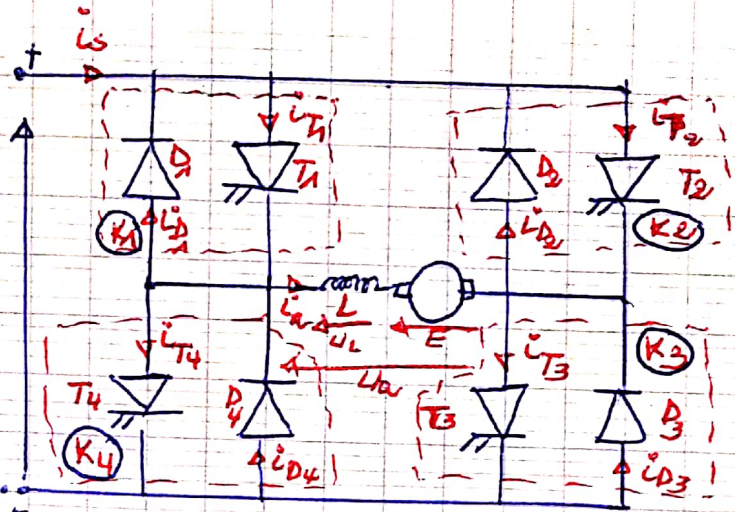 is
+
iT1
iT2
D1
T1
D2
T2
K1
iD1
iD2
K2
ia
L
uL
E
Ua
iT4
iT3
K3
T4
D4
T3
D3
K4
iD4
iD3
-